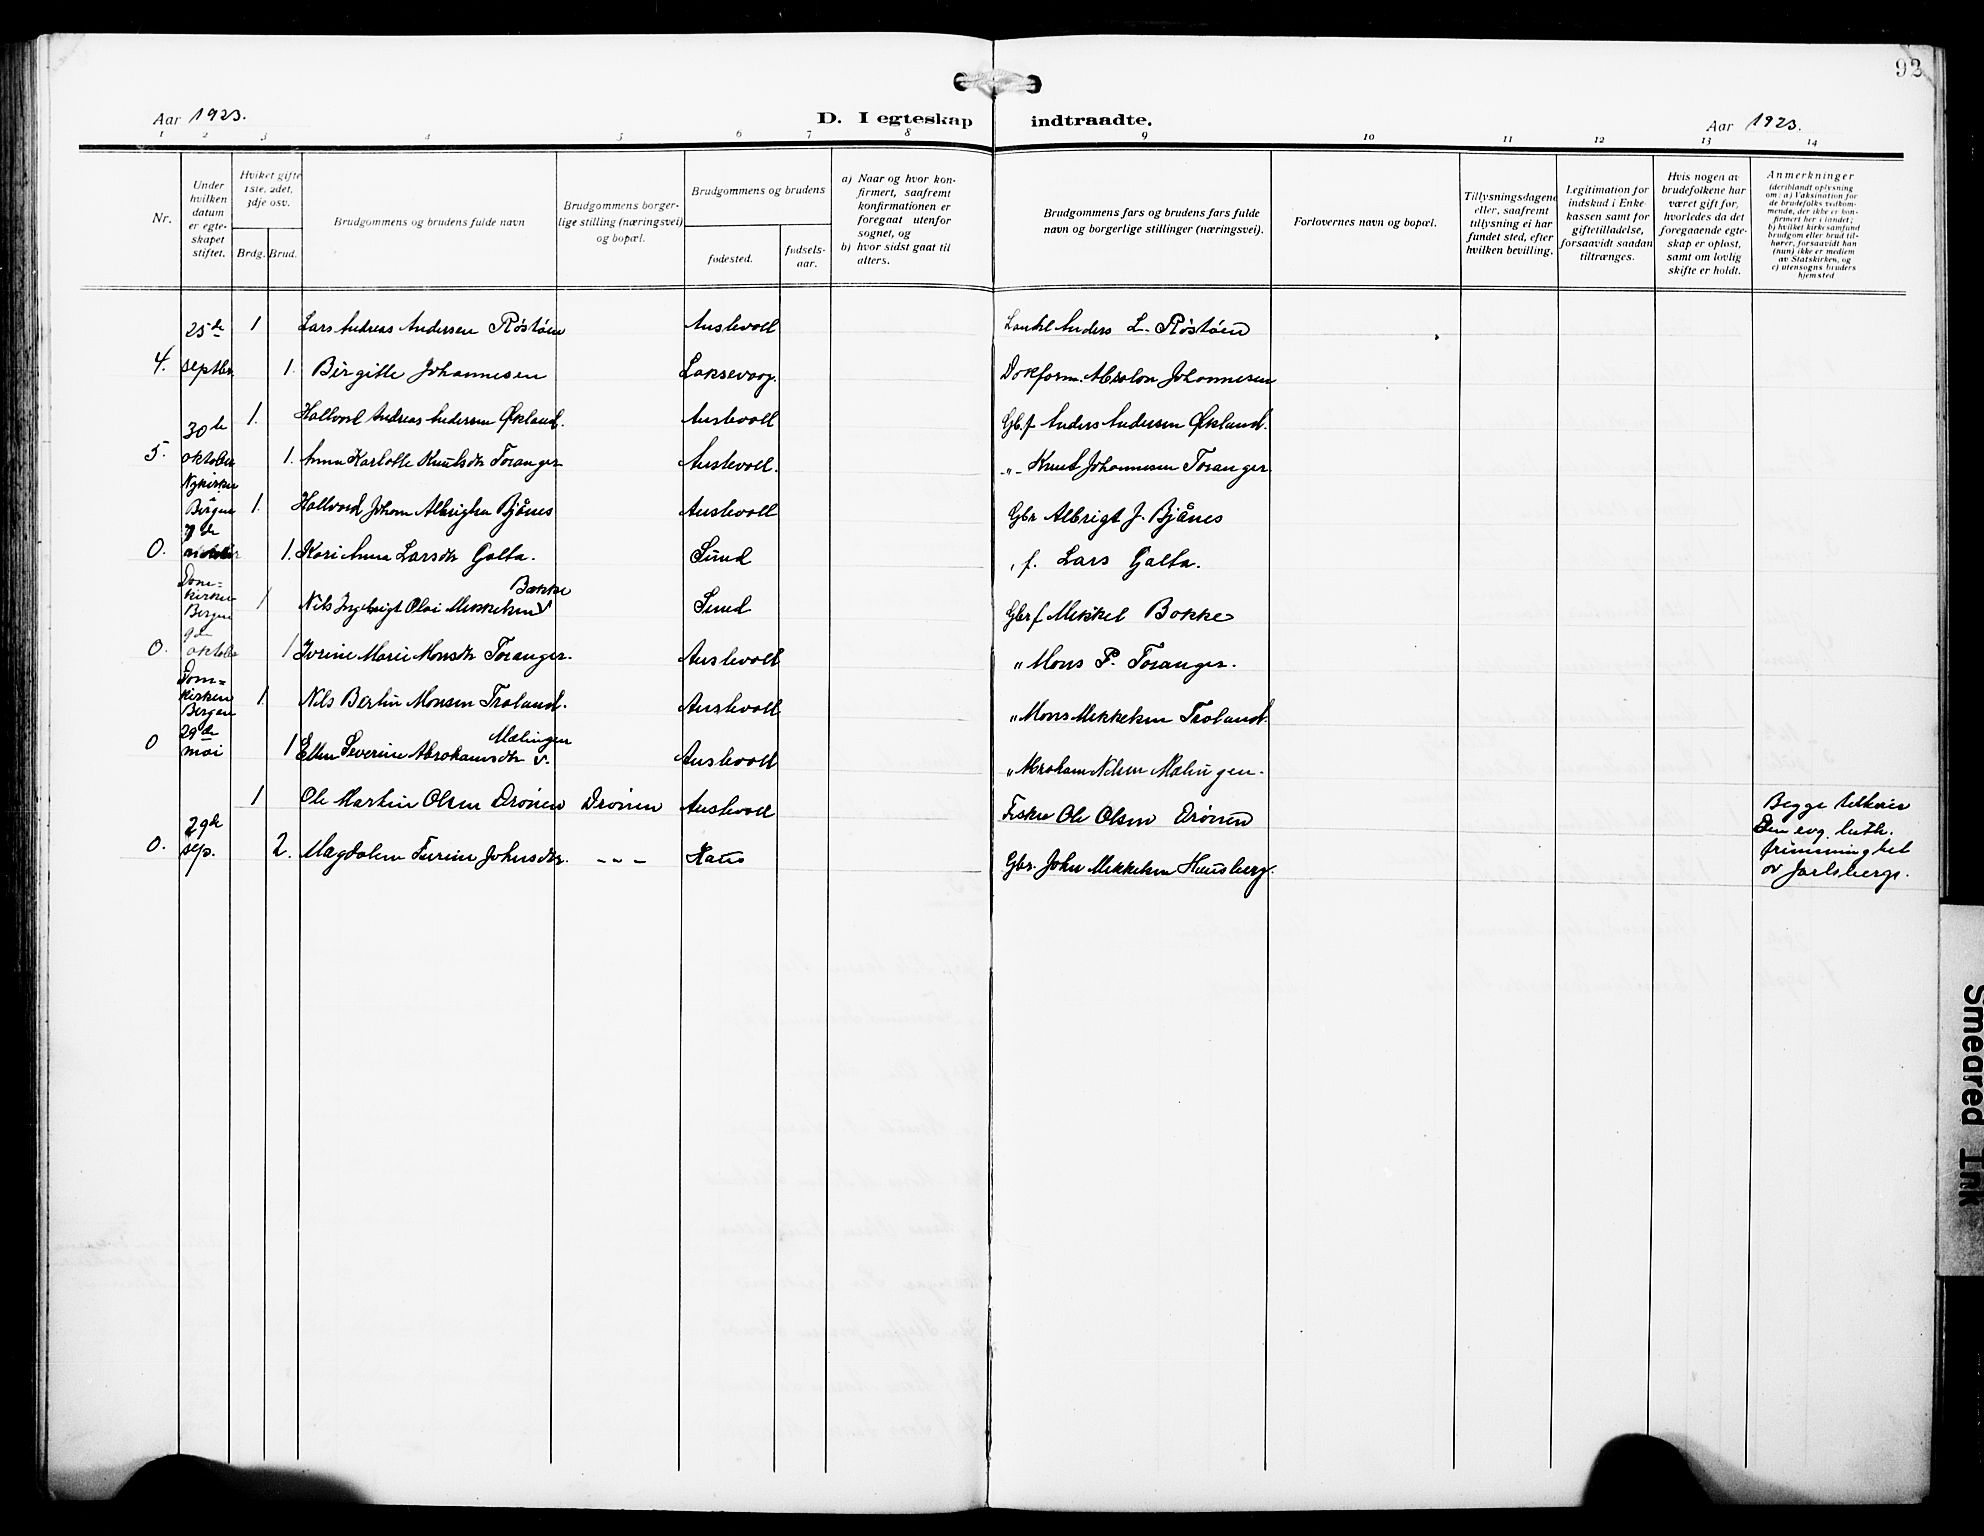 92
Aar 1923.
D. I egteskap indtraadte.
Aar 1923.
1 2 3 4 5 6 7 8 9 10 11 12 13 14
Nr.
Under hvilken datum er egteskapet stiftet.
Hviket gifte 1ste, 2det, 3dje osv.
Brdg. Brud.
Brudgommens og brudens fulde navn
Brudgommens borgerlige stilling (næringsvei) og bopæl.
Brudgommens og brudens
fødested.
fødselsaar.
a) Naar og hvor konfirmert, saafremt konfirmationen er foregaat utenfor sognet, og
b) hvor sidst gaat til alters.
Brudgommens fars og brudens fars fulde navn og borgerlige stillinger (næringsvei).
Forlovernes navn og bopæl.
Tillysningsdagene eller, saafremt tillysning ei har fundet sted, efter hvilken bevilling.
Legitimation for indskud i Enkekassen samt for giftetilladelse, forsaavidt saadan tiltrænges.
Hvis nogen av brudefolkene har været gift før, hvorledes da det foregaaende egteskap er opløst, samt om lovlig skifte er holdt.
Anmerkninger (deriblandt oplysning om: a) Vaksination for de brudefolks vedkommende, der ikke er konfirmert her i landet; b) hvilket kirkesamfund brudgom eller brud tilhører, forsaavidt han (hun) ikke er medlem av Statskirken, og c) utensogns bruders hjemsted
25de 1 Lars Andreas Andersen Røstøen Austevoll Landh Anders L. Røstøen
4. septbr. 1. Birgitte Johannesen Laksevaag. Dokform. Absalon Johannesen
30te 1. Hallvard Andreas Andersen Økland. Austevoll Gbr.f Anders Andersen Økland.
5. oktober 1. Anna Karlotte Knutsdtr Toranger Austevoll. -"- Knut Johannesen Toranger
Nykirken Bergen 1. Hallvard Johan Albrigtsen Bjånes Austevoll Gbr Albrigt J. Bjånes
0. 7de 1. Kari Anna Larsdtr Golta. Sund " f. Lars Golta.
Domkirken Bergen 1 Nils Ingebrigt Olai Mikkelsen Bakke Sund Gbr f Mikkel Bakke
0. 9de oktober 1 Iverine Marie Monsdtr Toranger. Austevoll " Mons P. Toranger.
Domkirken Bergen 1. Nils Bertin Monsen Troland. Austevoll " Mons Mikkelsen Troland.
0 29de mai 1 Ellen Severine Abrahamsdtr Mælingen Austevoll " Abraham Nilsen Mælingen.
1 Ole Martin Olsen Drønen Drønen Austevoll Fisker Ole Olsen Drønen
0. 29de sep. 2. Magdalene Turine Johnsdtr. - - - Haus Gbr. John Mikkelsen Hausberg.
Begge tilhører
Den evg. luth.
frimenighet
av Jarlsberg.
Smeared Ink